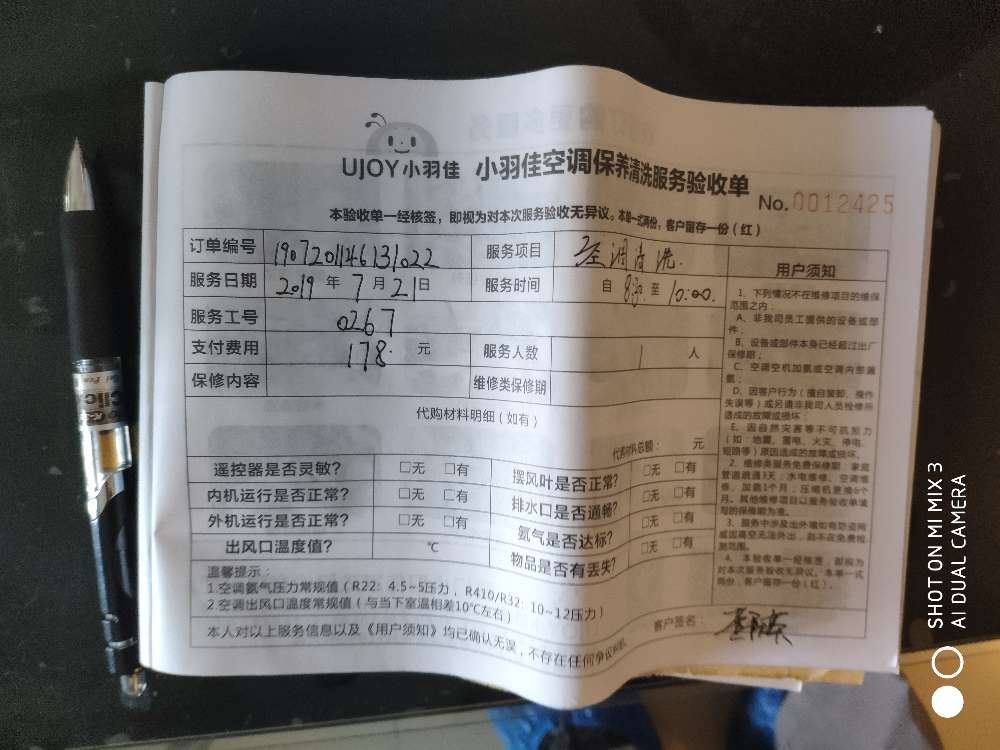 UJOY小羽佳 小羽佳空调保养清洗服务验收单
No.0012425
本验收单一经核签，即视为对本次服务验收无异议。本单一式两份，客户留存一份（红）
订单编号 1907201146131022 服务项目 空调清洗.
服务日期 2019 年 7 月 21 日 服务时间 自 8:30 至 10:00.
服务工号 0267
支付费用 178. 元 服务人数 1 人
保修内容 维修类保修期
代购材料明细（如有）
代购材料总额： 元
遥控器是否灵敏？ □无 □有 摆风叶是否正常？ □无 □有
内机运行是否正常？ □无 □有 排水口是否通畅？ □无 □有
外机运行是否正常？ □无 □有 氨气是否达标？ □无 □有
出风口温度值？ ℃ 物品是否有丢失？ □无 □有
温馨提示：
1.空调氨气压力常规值（R22: 4.5~5压力，R410/R32: 10~12压力）
2.空调出风口温度常规值（与当下室温相差10℃左右）
本人对以上服务信息以及《用户须知》均已确认无误，不存在任何争议
客户签名：
用户须知
1、下列情况不在维修项目的维保
范围之内：
A、非我司员工提供的设备或部
件；
B、设备或部件本身已经超过出厂
保修期；
C、空调空机加氨或空调内部漏
氨；
D、因客户行为（擅自装卸、操作
失误等）或另请非我司人员检修所
造成的故障或损坏；
E、因自然灾害等不可抗拒力
（如：地震、雷电、火灾、停电、
短路等）原因造成的故障或损坏。
2、维修类服务免费保修期：家庭
管道疏通3天；水电维修、空调维
修、加氨1个月；压缩机更换6个
月。其他维修项目以服务验收单填
写的保修期为准。
3、服务中涉及出外墙如有防盗网
或因高空无法外出，则不在免费检
测范围。
4、本验收单一经核签，即视为
对本次服务验收无异议。本单一式
两份，客户留存一份（红）。
SHOT ON MI MIX 3
AI DUAL CAMERA